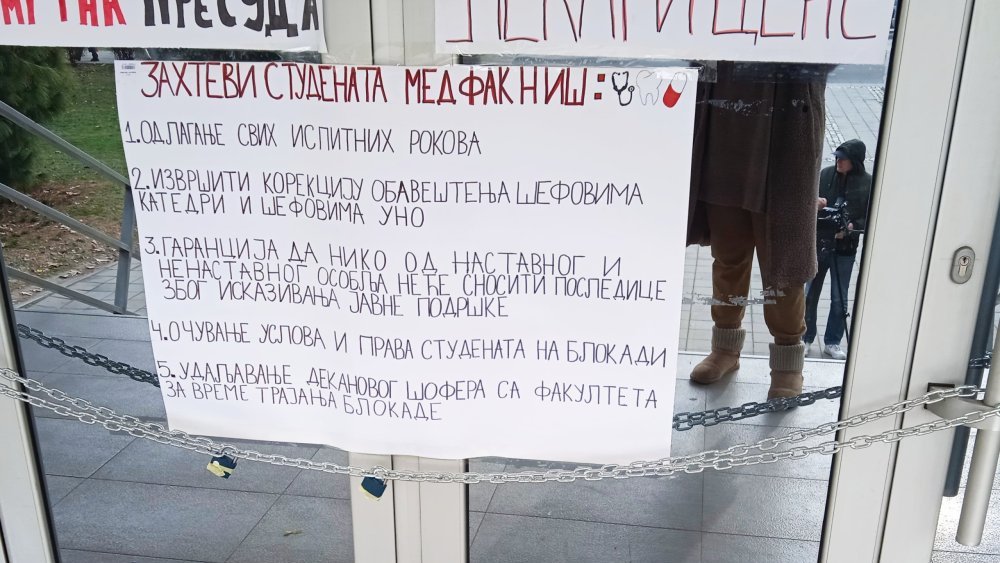 ПРЕСУДА
ЗАХТЕВИ СТУДЕНАТА МЕДФАК НИШ:
1. ОДЛАГАЊЕ СВИХ ИСПИТНИХ РОКОВА
2. ИЗВРШИТИ КОРЕКЦИЈУ ОБАВЕШТЕЊА ШЕФОВИМА
КАТЕДРИ И ШЕФОВИМА УНО
3. ГАРАНЦИЈА ДА НИКО ОД НАСТАВНОГ И
НЕНАСТАВНОГ ОСОБЉА НЕЋЕ СНОСИТИ ПОСЛЕДИЦЕ
ЗБОГ ИСКАЗИВАЊА ЈАВНЕ ПОДРШКЕ
4. ОЧУВАЊЕ УСЛОВА И ПРАВА СТУДЕНАТА НА БЛОКАДИ
5. УДАЉАВАЊЕ ДЕКАНОВОГ ШОФЕРА СА ФАКУЛТЕТА
ЗА ВРЕМЕ ТРАЈАЊА БЛОКАДЕ